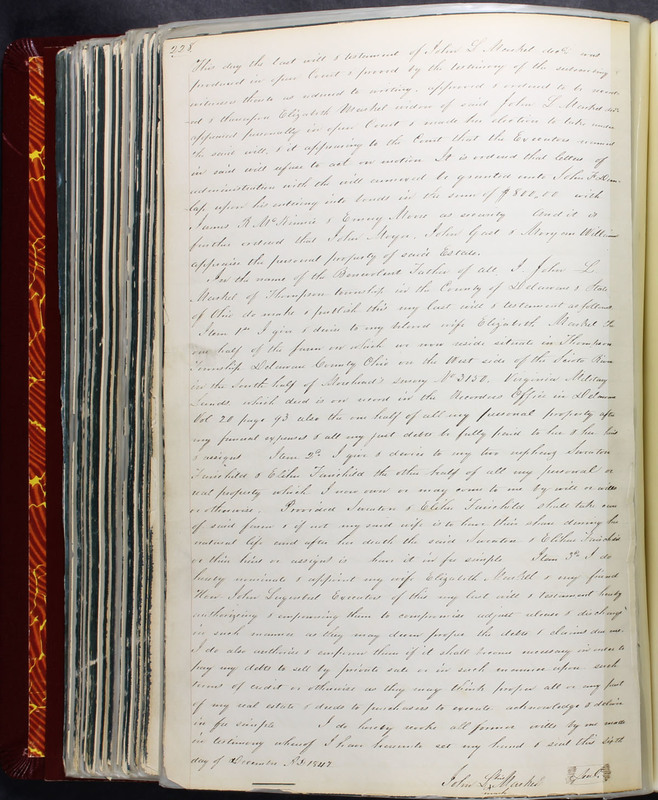 228
This day the last will & testament of John L Markel decd was
produced in open Court & proved by the testimony of the subscribing
witnesses thereto as reduced to writing, approved & ordered to be record
ed & thereupon Elizabeth Markel widow of said John L Markel decd
appeared personally in open Court & made her election to take under
the said will, & it appearing to the Court that the Executors named
in said will refuse to act on motion It is ordered that letters of
administration with the will annexed be granted unto John F Dun
lap upon his entering into bonds in the sum of $800,00 with
James R McKinnie & Emery Moore as security And it is
further ordered that John Moyer, John Gast & Morgan William
appraise the personal property of said Estate.
In the name of the Benevolent Father of all, I John L
Markel of Thompson township in the County of Delaware & State
of Ohio do make & publish this my last will & testament as follows
Item 1st I give & devise to my beloved wife Elizabeth Markel The
one half of the farm on which we now reside situate in Thompson
Township Delaware County Ohio on the West side of the Scioto River
in the South half of survey No 3150. Virginia Military
Lands, which deed is on record in the Recorders Office in Delaware
Vol 20 page 93 also the one half of all my personal property after
my funeral expenses & all my just debts be fully paid to her & her heirs
& assigns Item 2d I give & devise to my two nephews Sweaton
Fairchild & Elihu Fairchild the other half of all my personal or
real property which I now own or may come to me by will or
or otherwise. Provided Sweaton & Elihu Fairchild shall take care
of said farm & if not my said wife is to have their share during her
natural life and after her death the said Sweaton & Elihu Fairchild
or their heirs or assigns is have it in fee simple Item 3d I do
hereby nominate & appoint my wife Elizabeth Markel & my friend
Hon John Executors of this my last will & testament hereby
authorizing & empowering them to compromise adjust release & discharge
in such manner as they may deem proper the debts & claims due me.
I do also authorize & empower them if it shall become necessary in order to
pay my debts to sell by private sale or in such manner upon such
terms of credit or otherwise as they may think proper all or any part
of my real estate & deeds to purchasers to execute acknowledge & deliver
in fee simple I do hereby revoke all former wills by me made
in testimony whereof I have hereunto set my hand & seal this sixth
day of December A D 1847.
John L his X mark Markel Seal